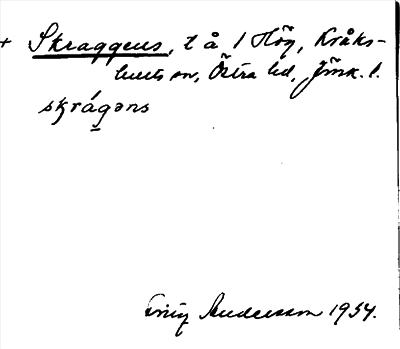 + Skraggens, t å 1 Hög, Kråks-
hults sn, Östra hd, Jönk. l.
skrágəns
Andersson 1934.